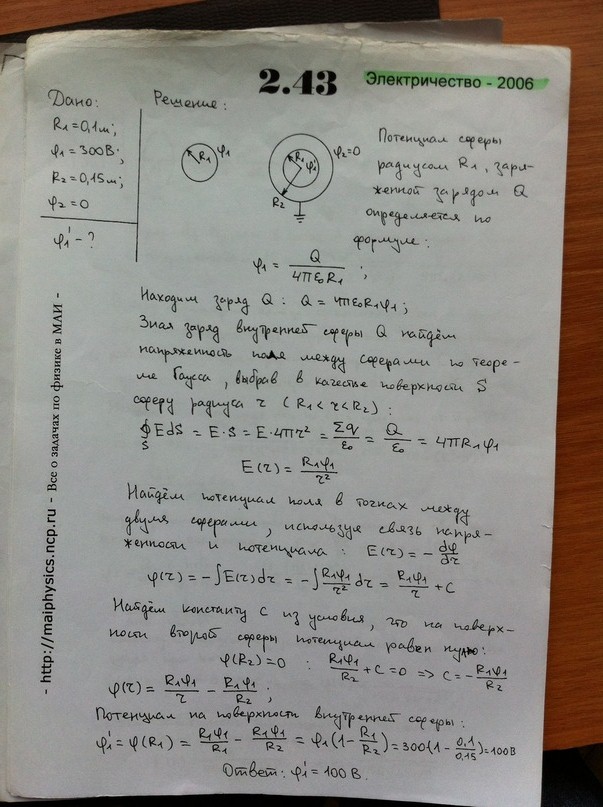 2.43 Электричество - 2006
Дано: Решение:
R1 = 0,1м;
φ1 = 300В;
R2 = 0,15м;
φ2 = 0
φ1' - ?
R1 φ1
R1 φ1' φ2=0
R2
Потенциал сферы
радиусом R1, заря-
женной зарядом Q
определяется по
формуле:
φ1 = Q / 4πε0R1 ;
Находим заряд Q : Q = 4πε0R1φ1 ;
Зная заряд внутренней сферы Q найдём
напряженность поля между сферами по теоре-
ме Гаусса, выбрав в качестве поверхности S
сферу радиуса r (R1 < r < R2) :
∮S EdS = E·S = E·4πr² = Σq/ε0 = Q/ε0 = 4πR1φ1
E(r) = R1φ1/r²
Найдём потенциал поля в точках между
двумя сферами, используя связь напря-
женности и потенциала : E(r) = - dφ/dr
φ(r) = -∫E(r)dr = -∫R1φ1/r² dr = R1φ1/r + C
Найдём константу C из условия, что на поверх-
ности второй сферы потенциал равен нулю:
φ(R2) = 0 : R1φ1/R2 + C = 0 => C = - R1φ1/R2
φ(r) = R1φ1/r - R1φ1/R2 ;
Потенциал на поверхности внутренней сферы:
φ1' = φ(R1) = R1φ1/R1 - R1φ1/R2 = φ1(1 - R1/R2) = 300(1 - 0,1/0,15) = 100В
Ответ: φ1' = 100 В.
- http://maiphysics.ncp.ru - Все о задачах по физике в МАИ -